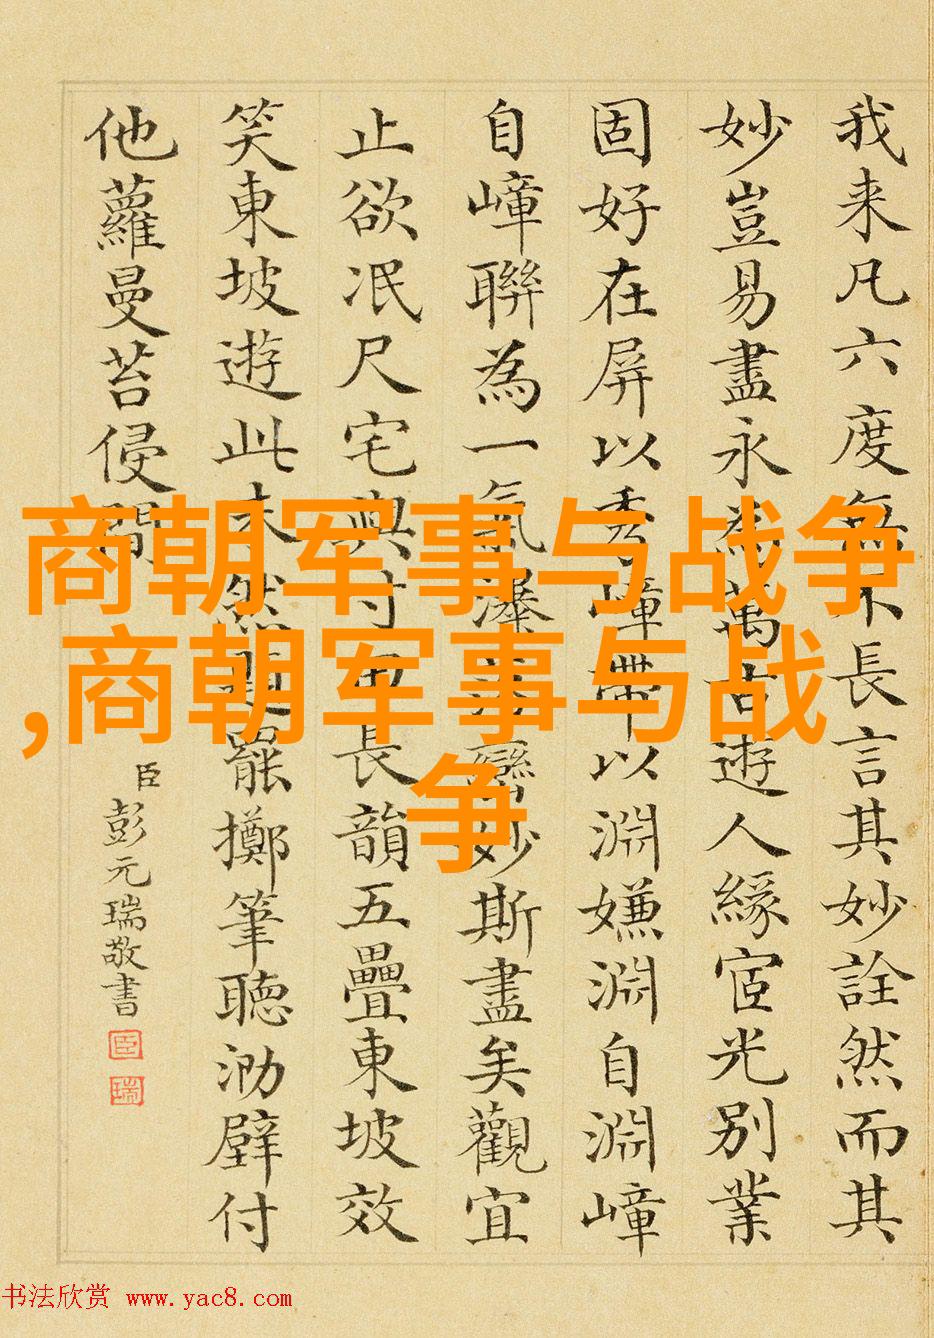 我来凡六度無不長言其妙詮然而其
妙豈易盡永為萬古遊人緣宧光別業
固好在屏以秀嶂帶以淵嫌淵自淵嶂
自嶂聯為一氣瀑巒妙斯盡矣觀宜
止欲泯尺宅興付長韻五疊東坡效
笑東坡遊此未然罷擲筆聽泐壁付
他蘿蔓苔侵
臣彭元瑞敬書
臣
瑞
商朝军事与战争
,商朝军事与战
争
书法欣赏 www.yac8.com